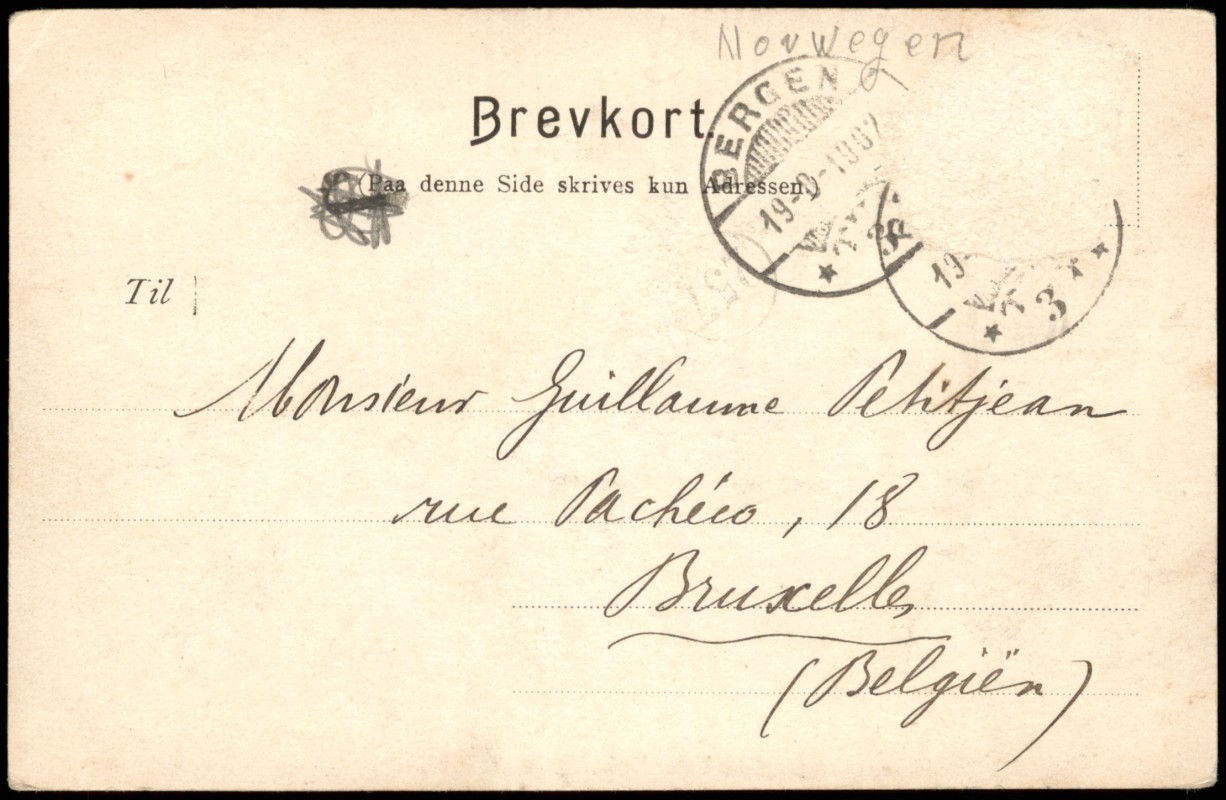 Norwegen
Brevkort.
(Paa denne Side skrives kun Adressen.)
BERGEN
T 3
19
T 3
257
Til
Monsieur Guillaume Petitjean
rue Pachéco, 18
Bruxelles
(Belgiën)